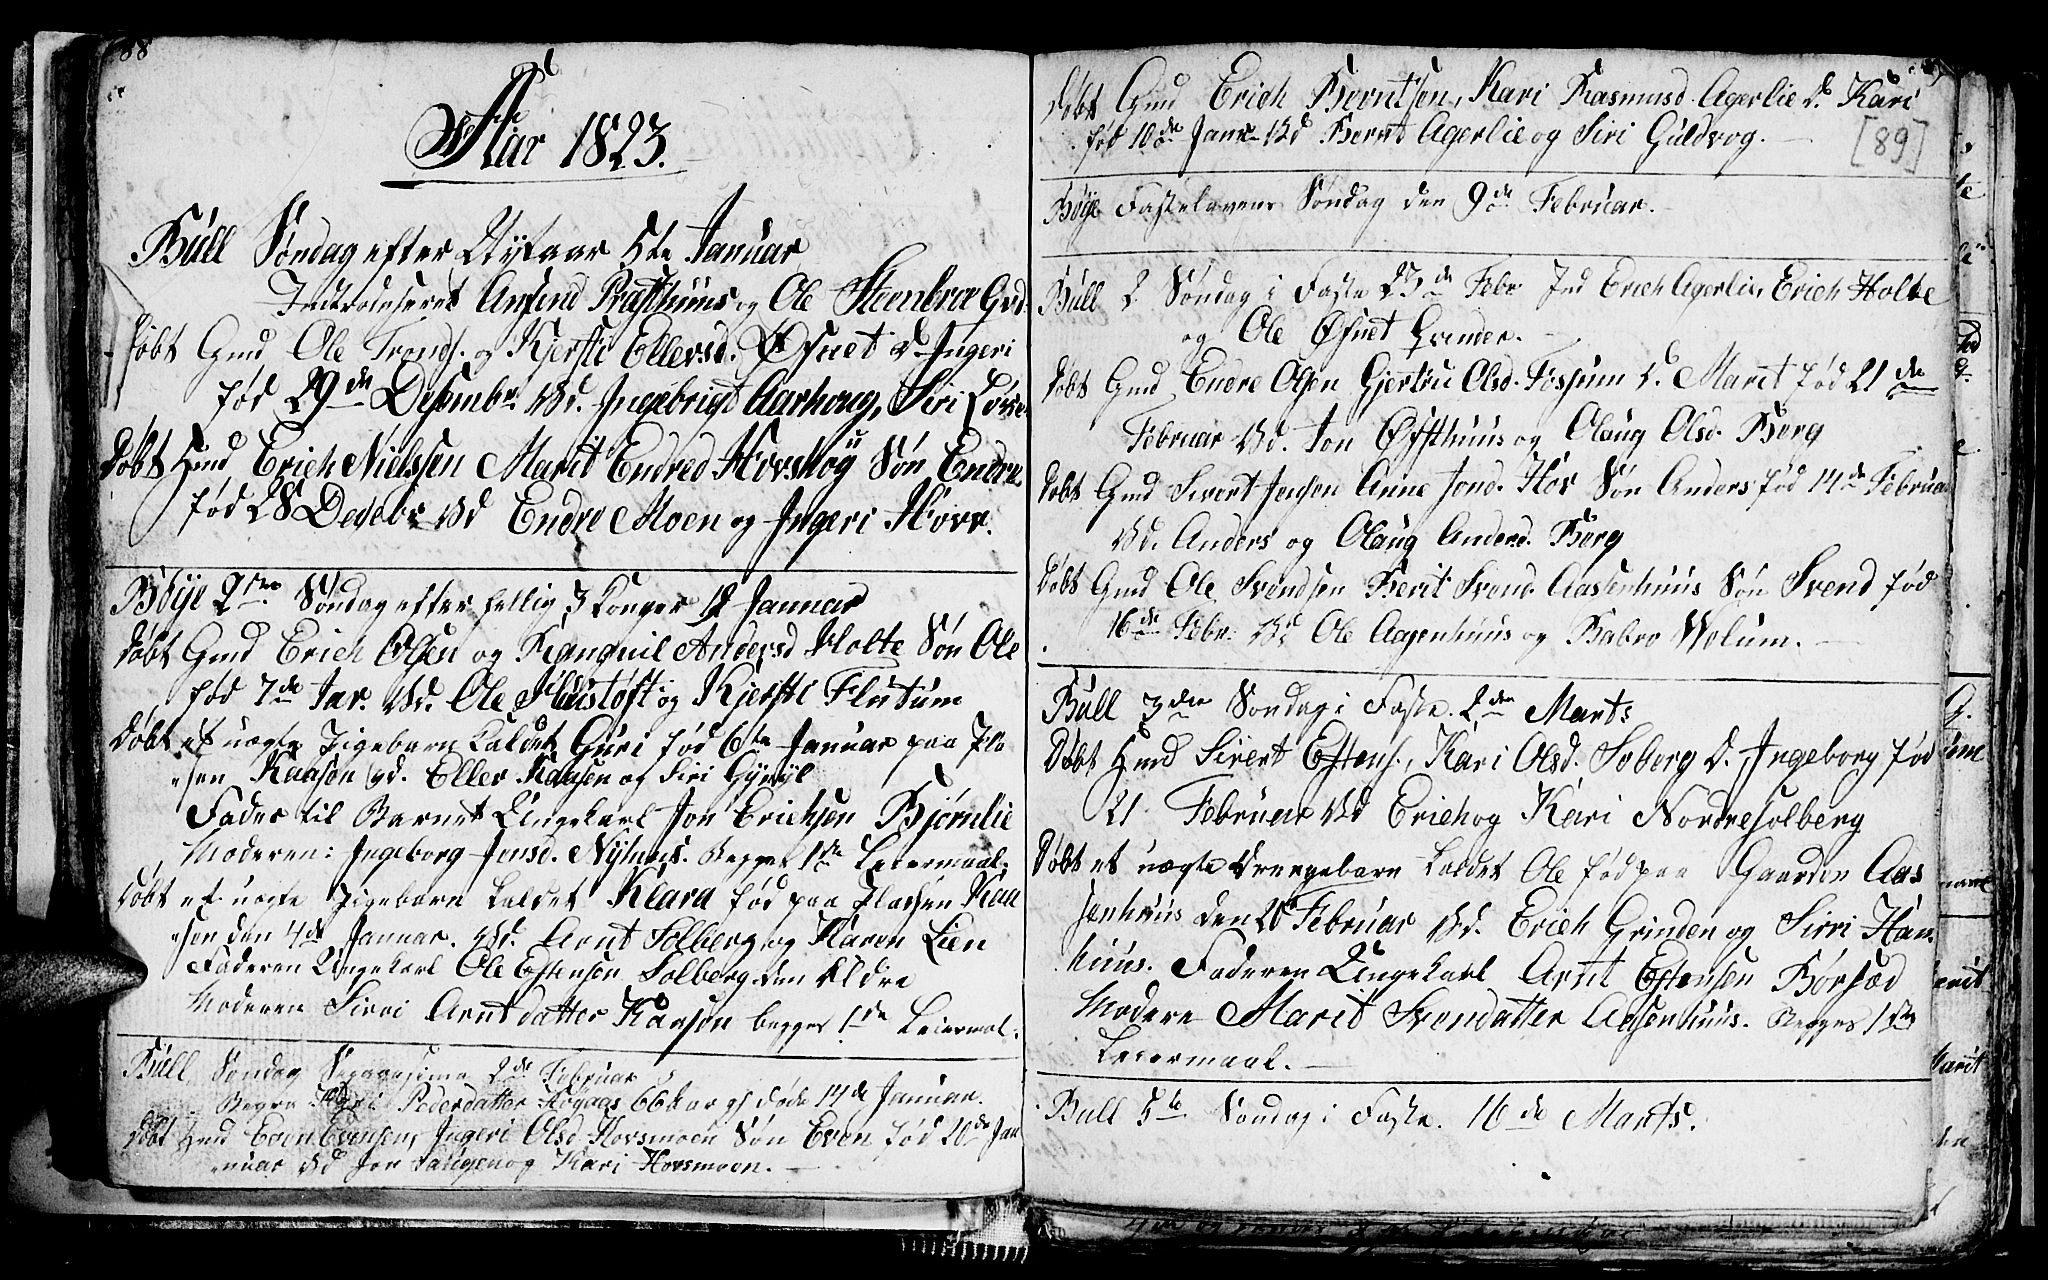 88
Aar 1823.
Büll Søndag efter Nÿtaar 5te Januar
Introduseret Amund Præsthuus og Ole Steenbroe Grd
Døbt Gmd Ole Tronds. og Kjersti Ellersd. Øfnet D. Ingeri
fød 29de Desembr. Vd. Ingebrigt Aarhoug, Siri
Døbt Hmd Erich Nielssen Marit Endred Hovshoÿ Søn Endre
fød 28 Desebr Vd Endre Moen og Ingeri Hovr.
Böÿe 2den Søndag efter hellig 3 Konger 12 Januar
Døbt Gmd Erich Olsen og Andersd Holte Søn Ole
fød 7de Jar. Vd. Ole og Kjersti Flutum
Døbt et uægte Pigebarn kaldet Guri fød 6te Januar paa Pla
sen Kaasen Vd. Eller Kaasen og Siri
Fader til Barnet Ungekarl Jon Erichsen Bjørnlie
Moderen: Ingeborg Jonsd. Begges 1te Leiermaal.
Døbt et uegte Pigebarn kaldet Klara fød paa Plassen Kaa
sen den 4de Januar. Vd. Arnt Solberg og Karen Lien
Faderen Ungekarl Ole Estensen Solberg den Eldre
Moderen Sirri Arntdatter Kaasen begges 1de Leiermal.
Büll Søndag 2de Februar
Begra Pedersdatter Høÿaas 66 Aar gl døde 14de Januar.
Døbt Hmd Even Evensen, Ingeri Olsd Hovsmoen Søn Even fød 20de Jan
nuar Vd Jon og Kari Hovsmoen.
Døbt Gmd Erich Berntsen, Kari Rasmusd Agerlie D. Kari
fød 10de Janr. Vd Bernt Agerlie og Siri Guldvog.
[89]
Böÿe Fastelavens Søndag den 9de Februar.
Büll 2 Søndag i Faste 23de Febr Ind Erich Agerlie, Erich Holte
og Ole Øfnet Qvinder.
Døbt Gmd Endre Olsen Gjertru Olsd. Fossum D. Marit fød 21de
Februar Vd. Jon Øfsthuus og Olaug Olsd. Berg
Døbt Gmd Sivert Jensen Anne Jond. Hov Søn Anders fød 14de Februar
Vd. Anders og Olaug Andersd. Berg
Døbt Gmd Ole Svendsen Berit Svend. Aasenhuus Søn Svend fød
16de Febr. Vd Ole Aasenhuus og Babro Wolum.
Büll 3die Søndag i Faste. 2den Marts
Døbt Hmd Sivert Estens., Kari Olsd. Soberg D. Ingeborg fød
21 Februar Vd Erich og Kari Nordresolberg
Døbt et uægte Drengebarn kaldet Ole fød paa Gaarden Aas
senhuus den 20 Februar Vd. Erich Grinden og Sirri Han
huus. Faderen Ungekarl Arnt Estensen Børsæd
Modere Marit Svendatter Aasenhuus. Begges 1ste
Leiermaal.
Bull 5te Søndag i Faste. 16de Marts.